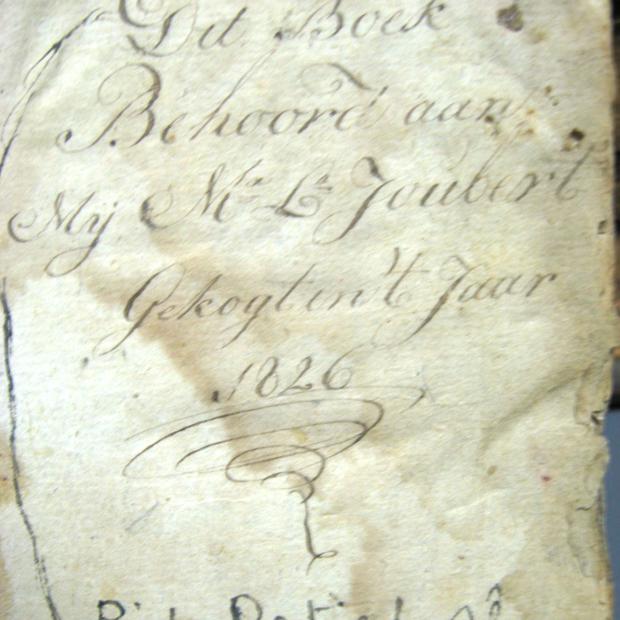 Dit Boek
Behoord aan
Mij Ms. Ls. Joubert
Gekogt in 't Jaar
1826